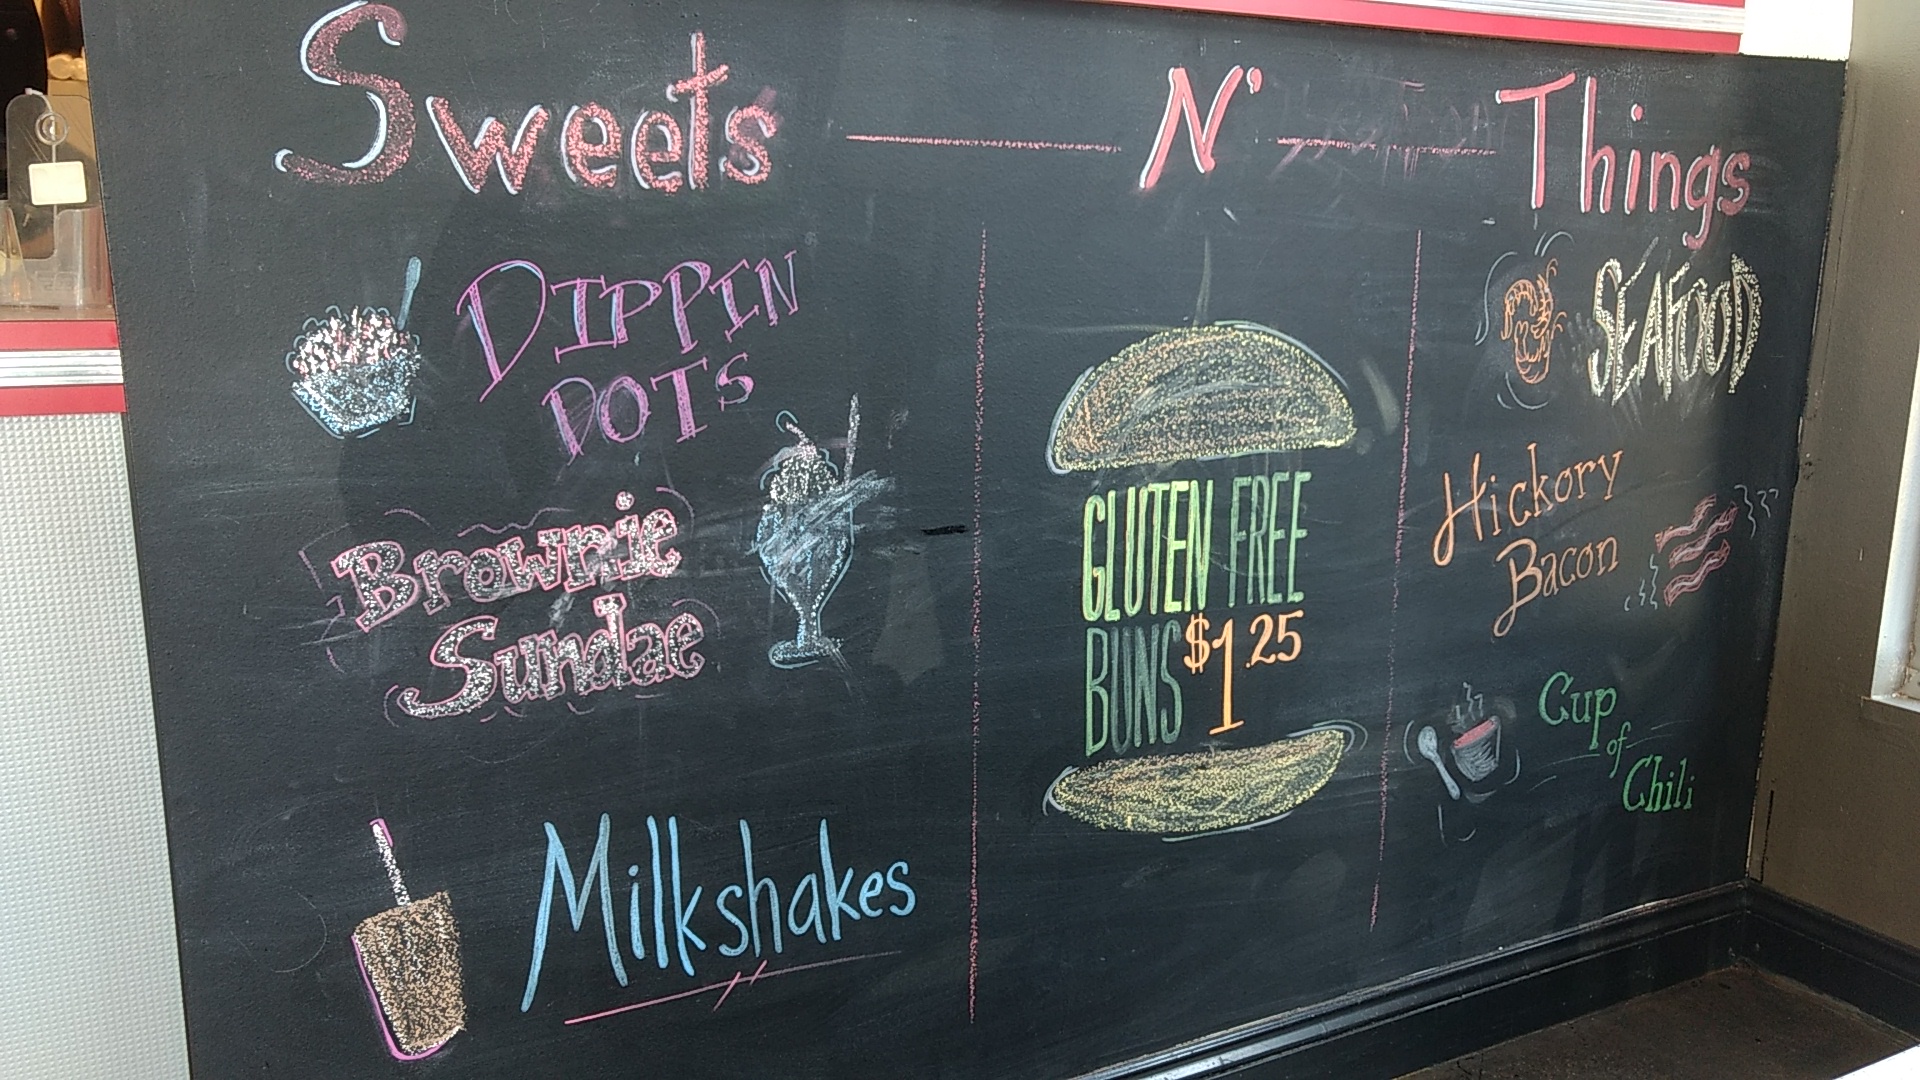 Sweets N' Things
DIPPIN
DOTS
Brownie
Sundae
Milkshakes
GLUTEN FREE
BUNS $1.25
SEAFOOD
Hickory
Bacon
Cup
of
Chili